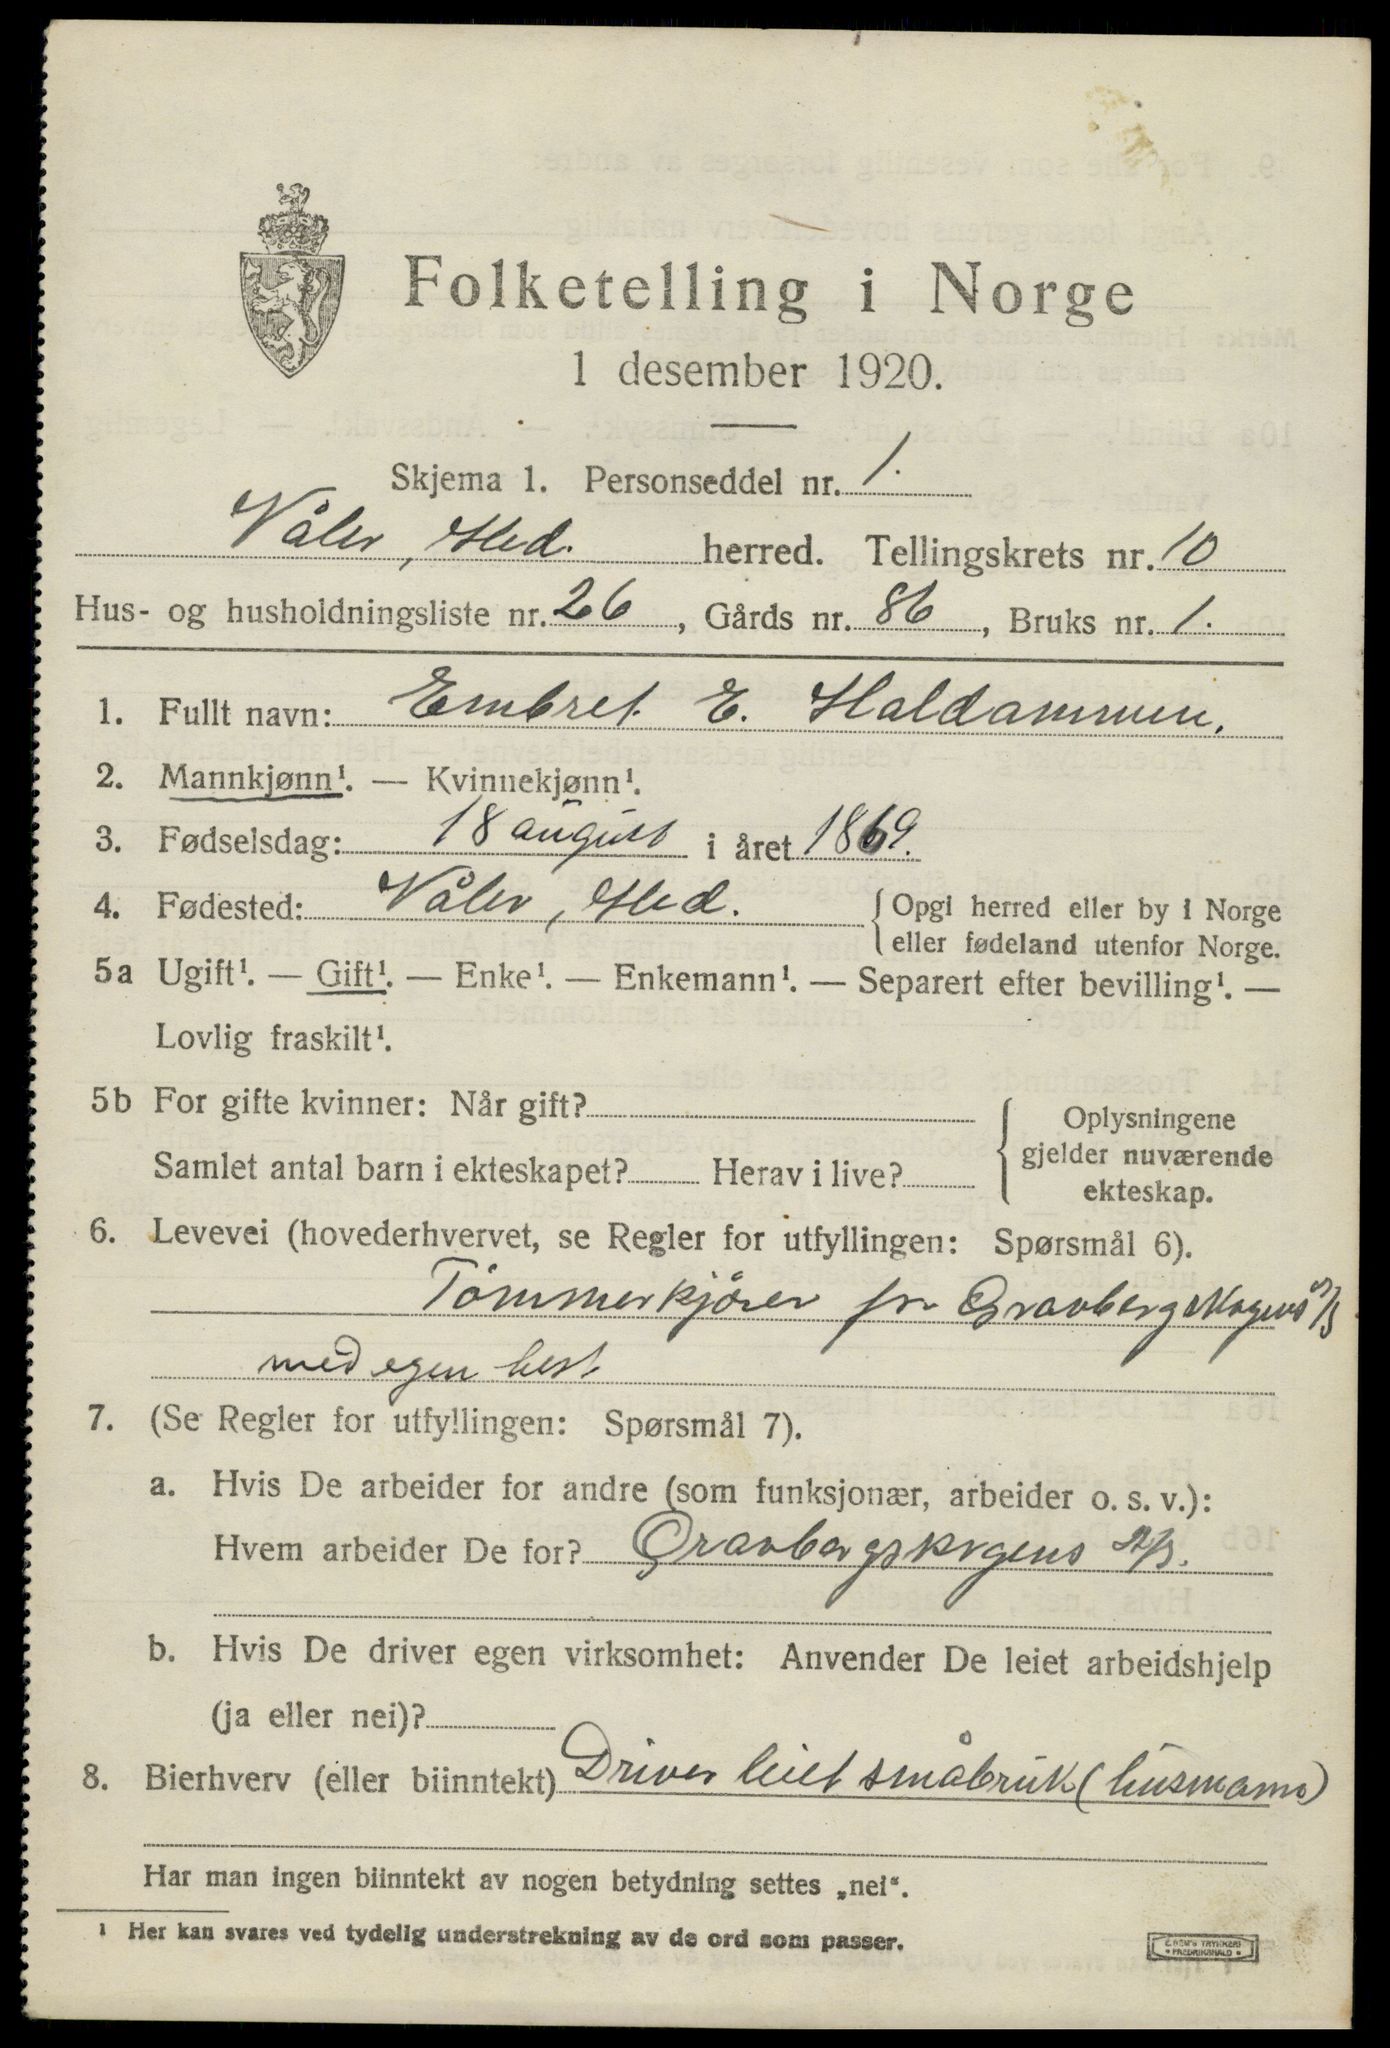 Folketelling i Norge
1 desember 1920.
Skjema 1. Personseddel nr. 1.
Våler, Hed. herred. Tellingskrets nr. 10
Hus- og husholdningsliste nr. 26, Gårds nr. 86, Bruks nr. 1.
1. Fullt navn: Embret E. Haldammen.
2. Mannkjønn¹. — Kvinnekjønn¹.
3. Fødselsdag: 18 august i året 1869.
4. Fødested: Våler, Hed. { Opgi herred eller by i Norge
eller fødeland utenfor Norge.
5a Ugift¹. — Gift¹. — Enke¹. — Enkemann¹. — Separert efter bevilling¹. —
Lovlig fraskilt¹.
5b For gifte kvinner: Når gift?
Samlet antal barn i ekteskapet? Herav i live?
{ Oplysningene
gjelder nuværende
ekteskap.
6. Levevei (hovederhvervet, se Regler for utfyllingen: Spørsmål 6).
Tömmerkjører for Gravberg skogens A/S
med egen hest
7. (Se Regler for utfyllingen: Spørsmål 7).
a. Hvis De arbeider for andre (som funksjonær, arbeider o. s. v.):
Hvem arbeider De for? Gravbergskogens A/S.
b. Hvis De driver egen virksomhet: Anvender De leiet arbeidshjelp
(ja eller nei)?
8. Bierhverv (eller biinntekt) Driver leiet småbruk (husmann)
Har man ingen biinntekt av nogen betydning settes „nei“.
¹ Her kan svares ved tydelig understrekning av de ord som passer.